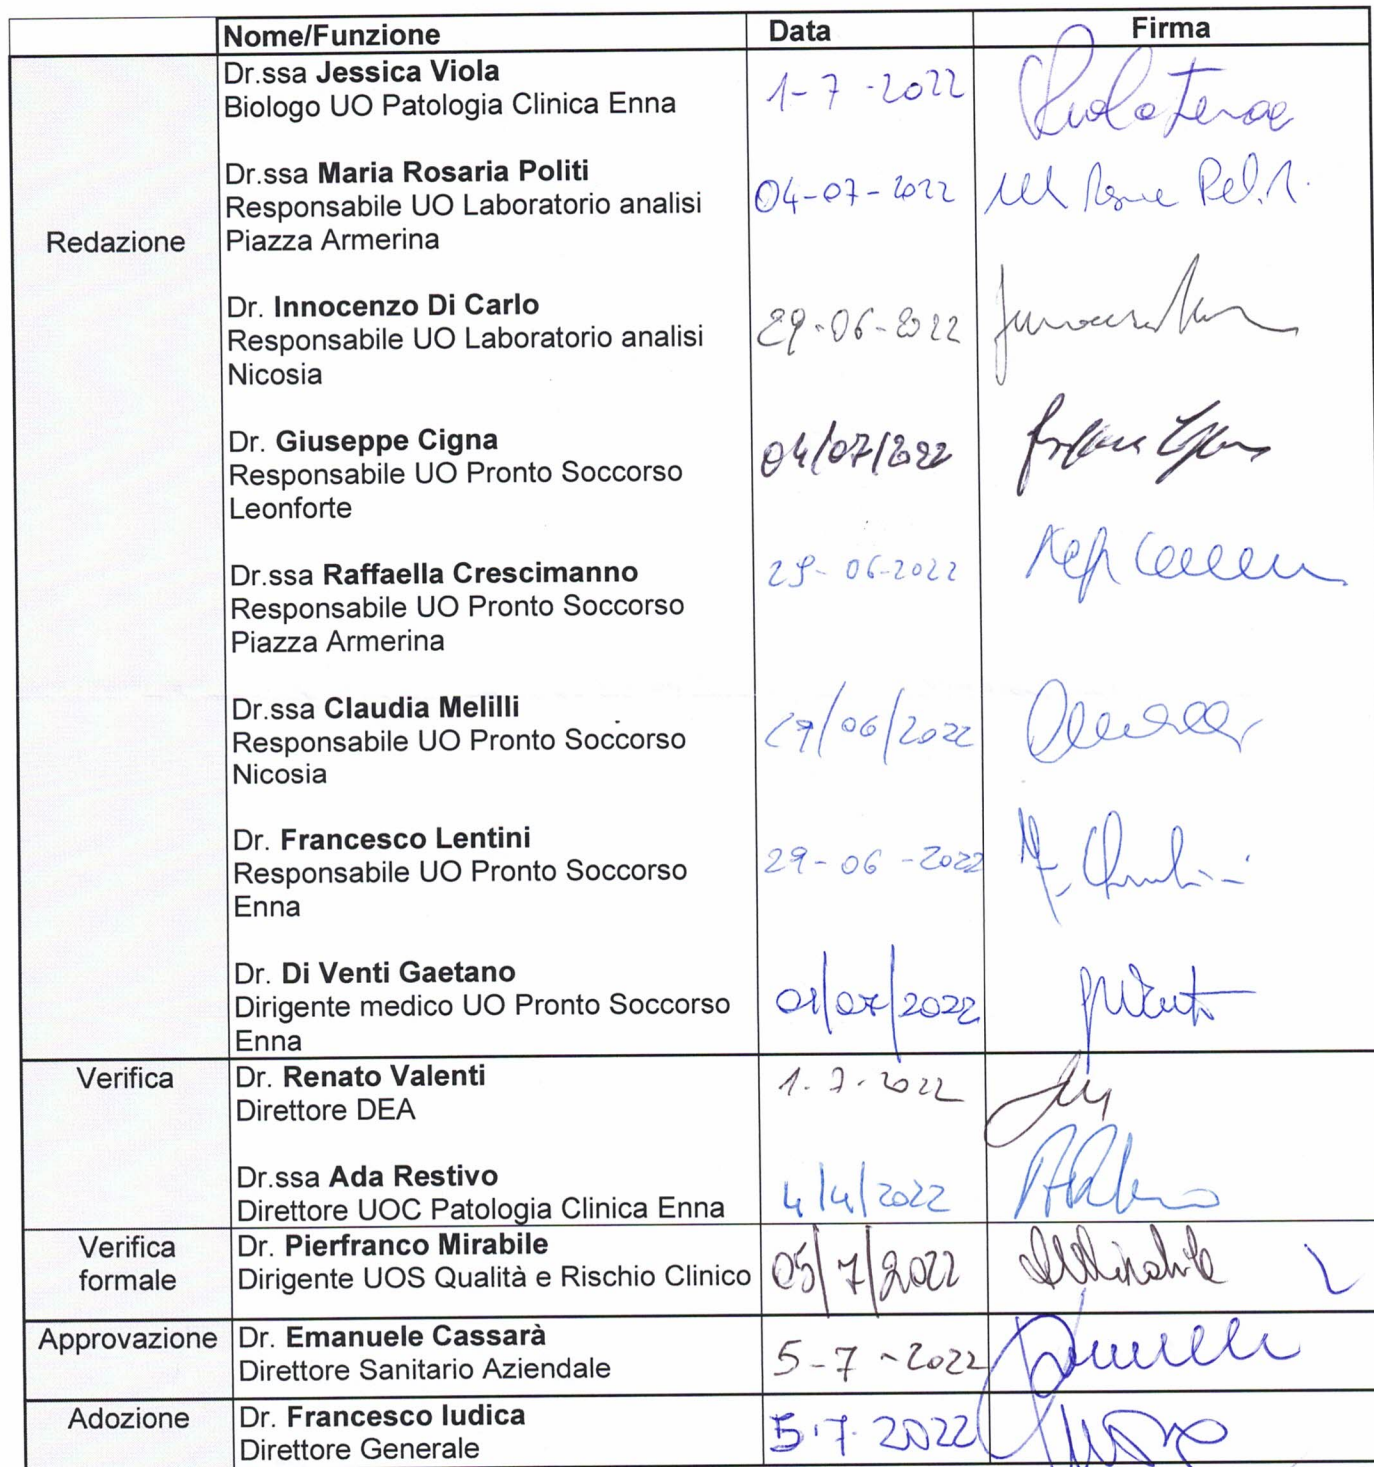 Nome/Funzione Data Firma
Redazione
Dr.ssa Jessica Viola
Biologo UO Patologia Clinica Enna
1-7-2022
Dr.ssa Maria Rosaria Politi
Responsabile UO Laboratorio analisi
Piazza Armerina
04-07-2022
Dr. Innocenzo Di Carlo
Responsabile UO Laboratorio analisi
Nicosia
29-06-2022
Dr. Giuseppe Cigna
Responsabile UO Pronto Soccorso
Leonforte
04/07/2022
Dr.ssa Raffaella Crescimanno
Responsabile UO Pronto Soccorso
Piazza Armerina
29-06-2022
Dr.ssa Claudia Melilli
Responsabile UO Pronto Soccorso
Nicosia
29/06/2022
Dr. Francesco Lentini
Responsabile UO Pronto Soccorso
Enna
29-06-2022
Dr. Di Venti Gaetano
Dirigente medico UO Pronto Soccorso
Enna
01/07/2022
Verifica
Dr. Renato Valenti
Direttore DEA
1.7.2022
Dr.ssa Ada Restivo
Direttore UOC Patologia Clinica Enna
4/4/2022
Verifica
formale
Dr. Pierfranco Mirabile
Dirigente UOS Qualità e Rischio Clinico
05/7/2022
Approvazione
Dr. Emanuele Cassarà
Direttore Sanitario Aziendale
5-7-2022
Adozione
Dr. Francesco Iudica
Direttore Generale
5.7.2022